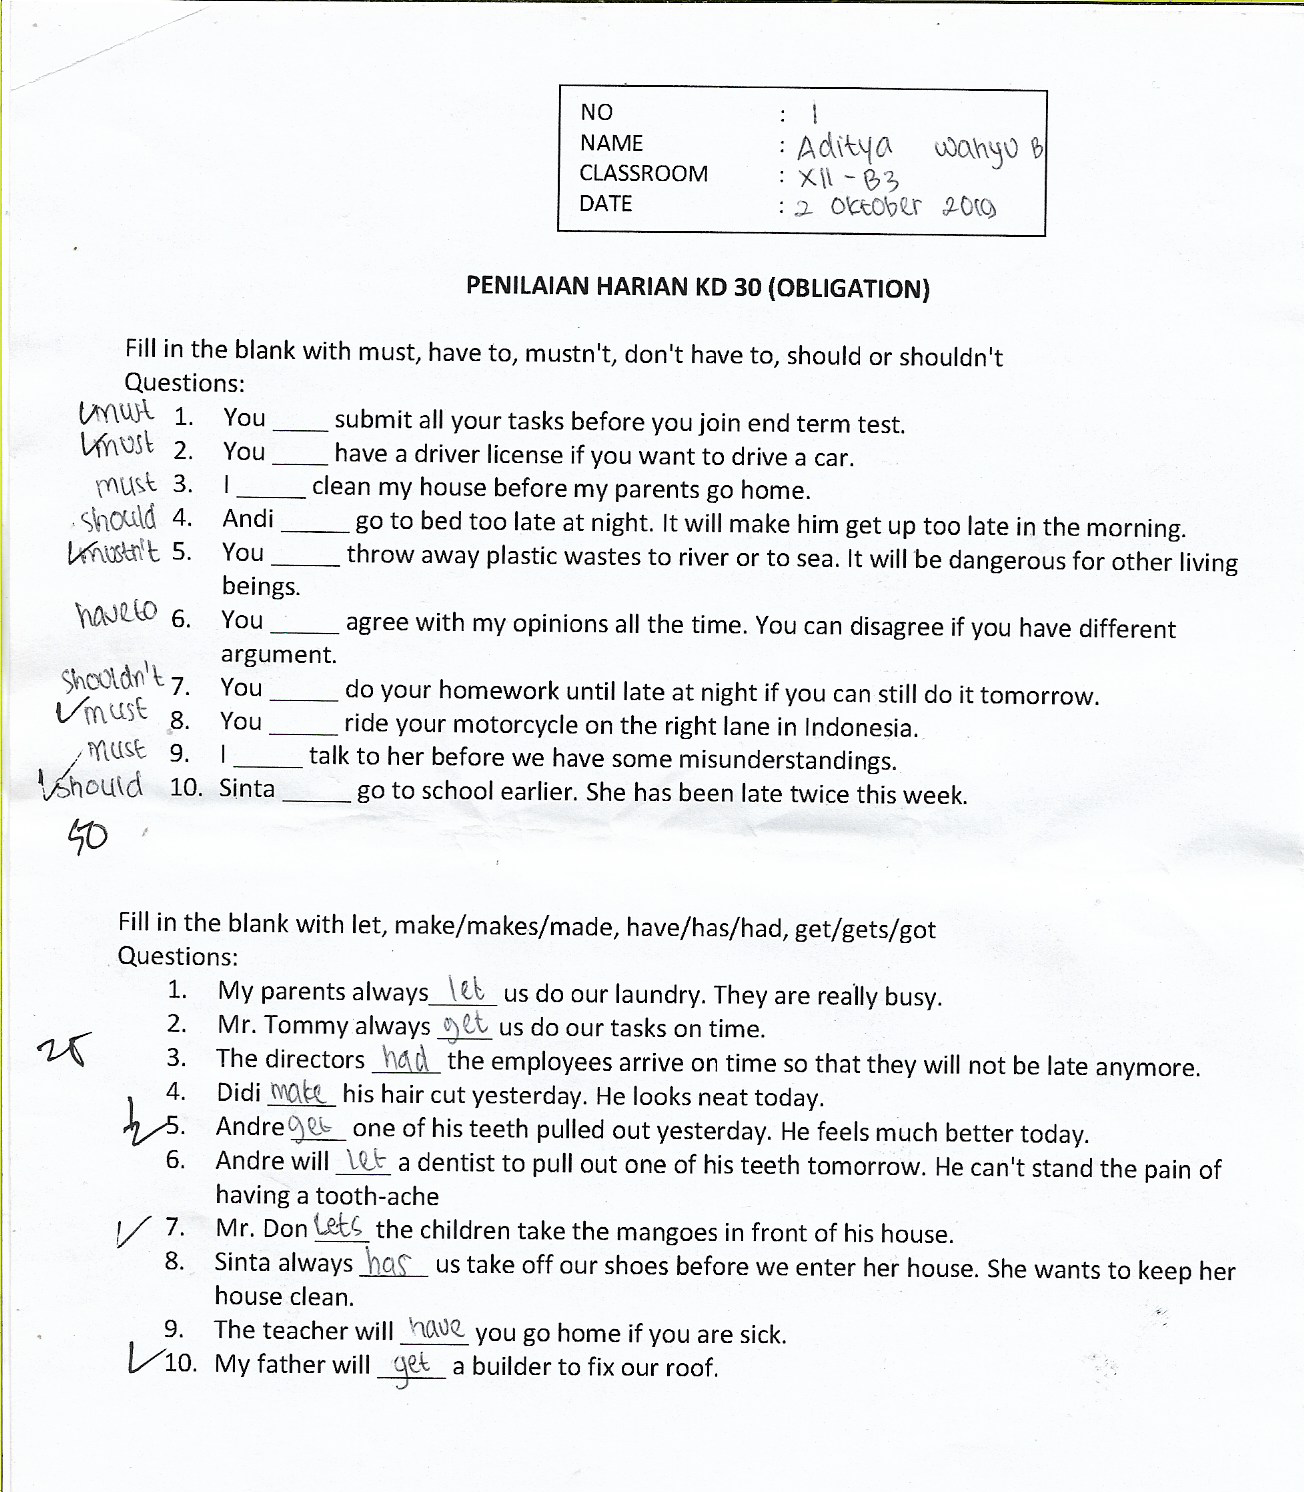 NO : 1
NAME : Aditya wahyu B
CLASSROOM : XII - B3
DATE : 2 Oktober 2019
PENILAIAN HARIAN KD 30 (OBLIGATION)
Fill in the blank with must, have to, mustn't, don't have to, should or shouldn't
Questions:
must 1. You ____ submit all your tasks before you join end term test.
must 2. You ____ have a driver license if you want to drive a car.
must 3. I _____ clean my house before my parents go home.
should 4. Andi _____ go to bed too late at night. It will make him get up too late in the morning.
mustn't 5. You _____ throw away plastic wastes to river or to sea. It will be dangerous for other living
beings.
have to 6. You _____ agree with my opinions all the time. You can disagree if you have different
argument.
shouldn't 7. You _____ do your homework until late at night if you can still do it tomorrow.
must 8. You _____ ride your motorcycle on the right lane in Indonesia.
must 9. I _____ talk to her before we have some misunderstandings.
should 10. Sinta _____ go to school earlier. She has been late twice this week.
50
Fill in the blank with let, make/makes/made, have/has/had, get/gets/got
Questions:
1. My parents always let us do our laundry. They are really busy.
2. Mr. Tommy always get us do our tasks on time.
25
3. The directors had the employees arrive on time so that they will not be late anymore.
4. Didi make his hair cut yesterday. He looks neat today.
5. Andre get one of his teeth pulled out yesterday. He feels much better today.
6. Andre will let a dentist to pull out one of his teeth tomorrow. He can't stand the pain of
having a tooth-ache
7. Mr. Don Lets the children take the mangoes in front of his house.
8. Sinta always has us take off our shoes before we enter her house. She wants to keep her
house clean.
9. The teacher will have you go home if you are sick.
10. My father will get a builder to fix our roof.